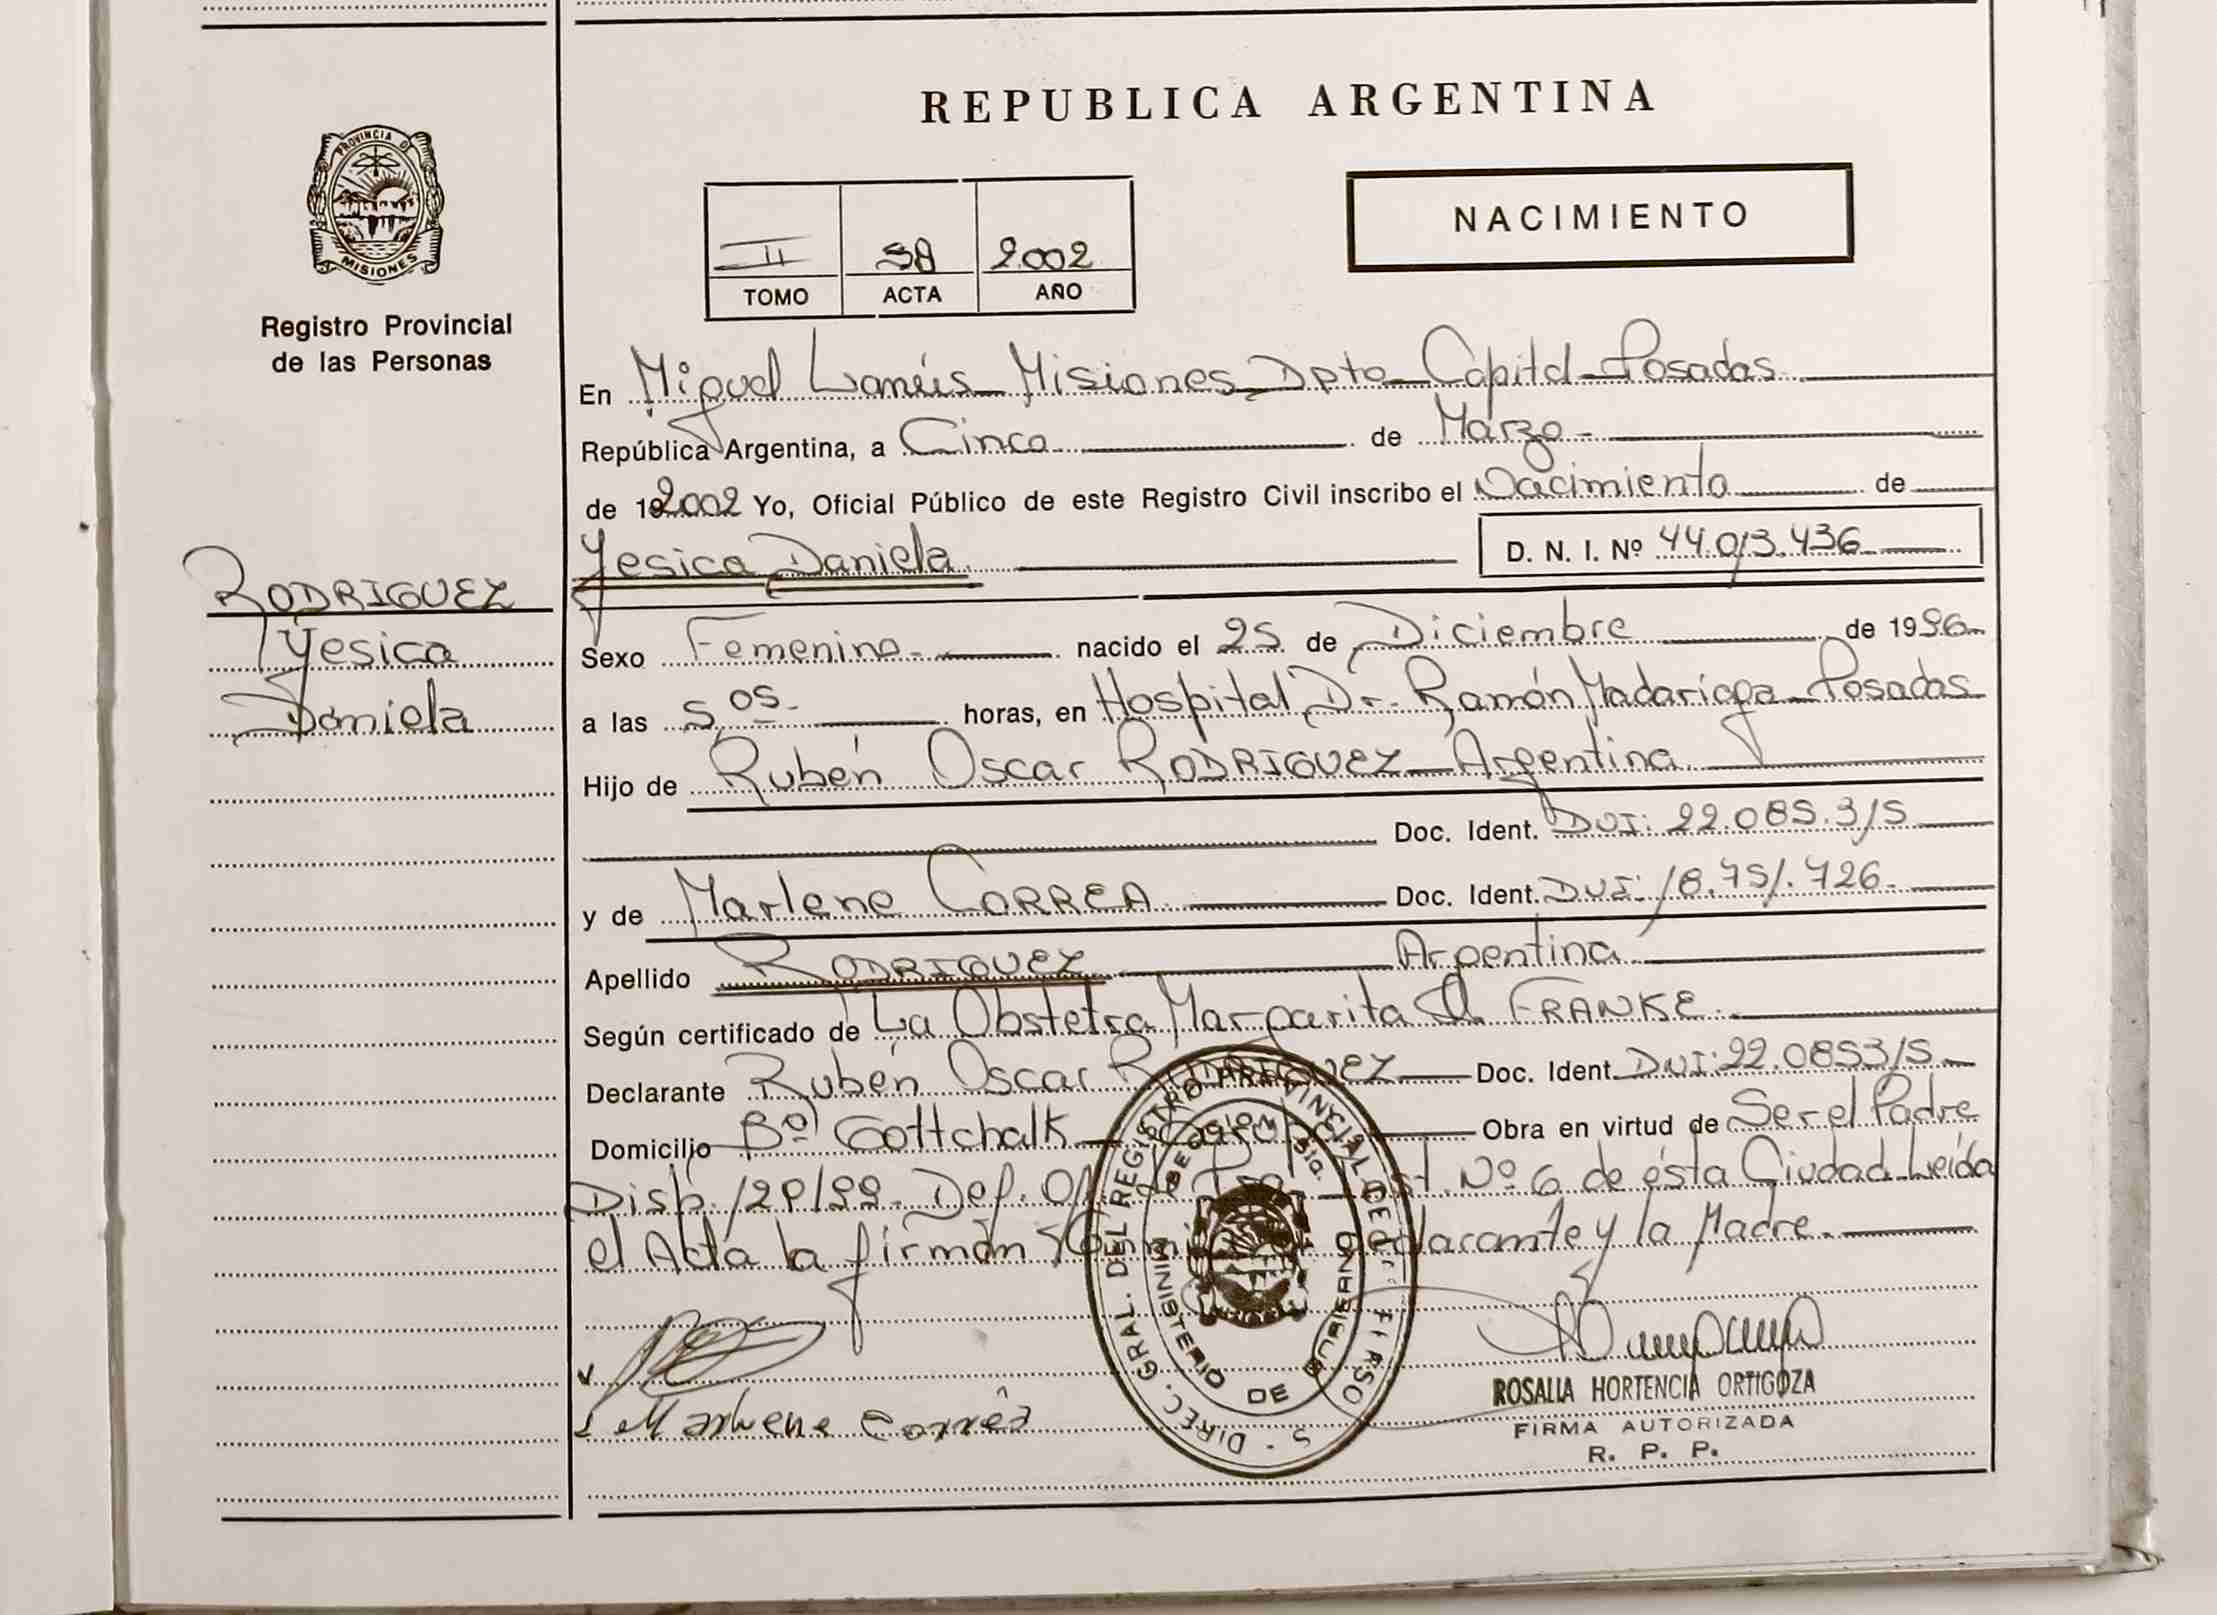 REPUBLICA ARGENTINA
PROVINCIA D
MISIONES
Registro Provincial
de las Personas
NACIMIENTO
II 58 2.002
TOMO ACTA AÑO
En Miguel Lanús Misiones Dpto Capital Posadas
República Argentina, a Cinco de Marzo
de 192002 Yo, Oficial Público de este Registro Civil inscribo el Nacimiento de
Yesica Daniela D. N. I. Nº 44.013.436
RODRIGUEZ
Yesica
Daniela
Sexo Femenino nacido el 25 de Diciembre de 1996
a las 5,05 horas, en Hospital Dr. Ramón Madariaga Posadas
Hijo de Rubén Oscar RODRIGUEZ Argentina
Doc. Ident. DNI: 22.085.315
y de Marlene CORREA Doc. Ident. DNI: 18.751.726
Apellido RODRIGUEZ Argentina
Según certificado de La Obstetra Margarita FRANKE
Declarante Rubén Oscar RODRIGUEZ Doc. Ident. DNI: 22.085315
Domicilio Bº Gottchalk Obra en virtud de Ser el Padre
Disp. Def. Nº 6 de ésta Ciudad Leída
el Acta la firmán declarante y la Madre.
DIREC. GRAL. DEL REGISTRO PROVINCIAL DE
MINISTERIO DE GOBIERNO
Marlene Correa
ROSALIA HORTENCIA ORTIGOZA
FIRMA AUTORIZADA
R. P. P.